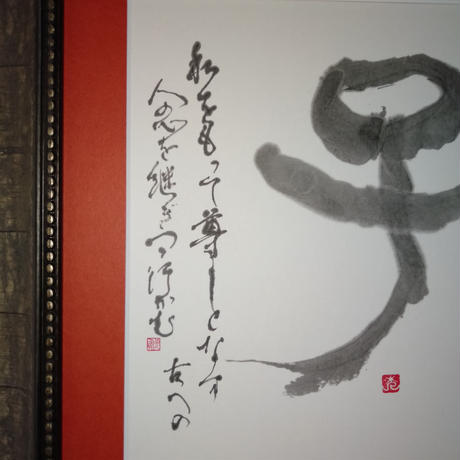 和をもって尊しとなす
古への
人の心を継ぎつつ行かむ